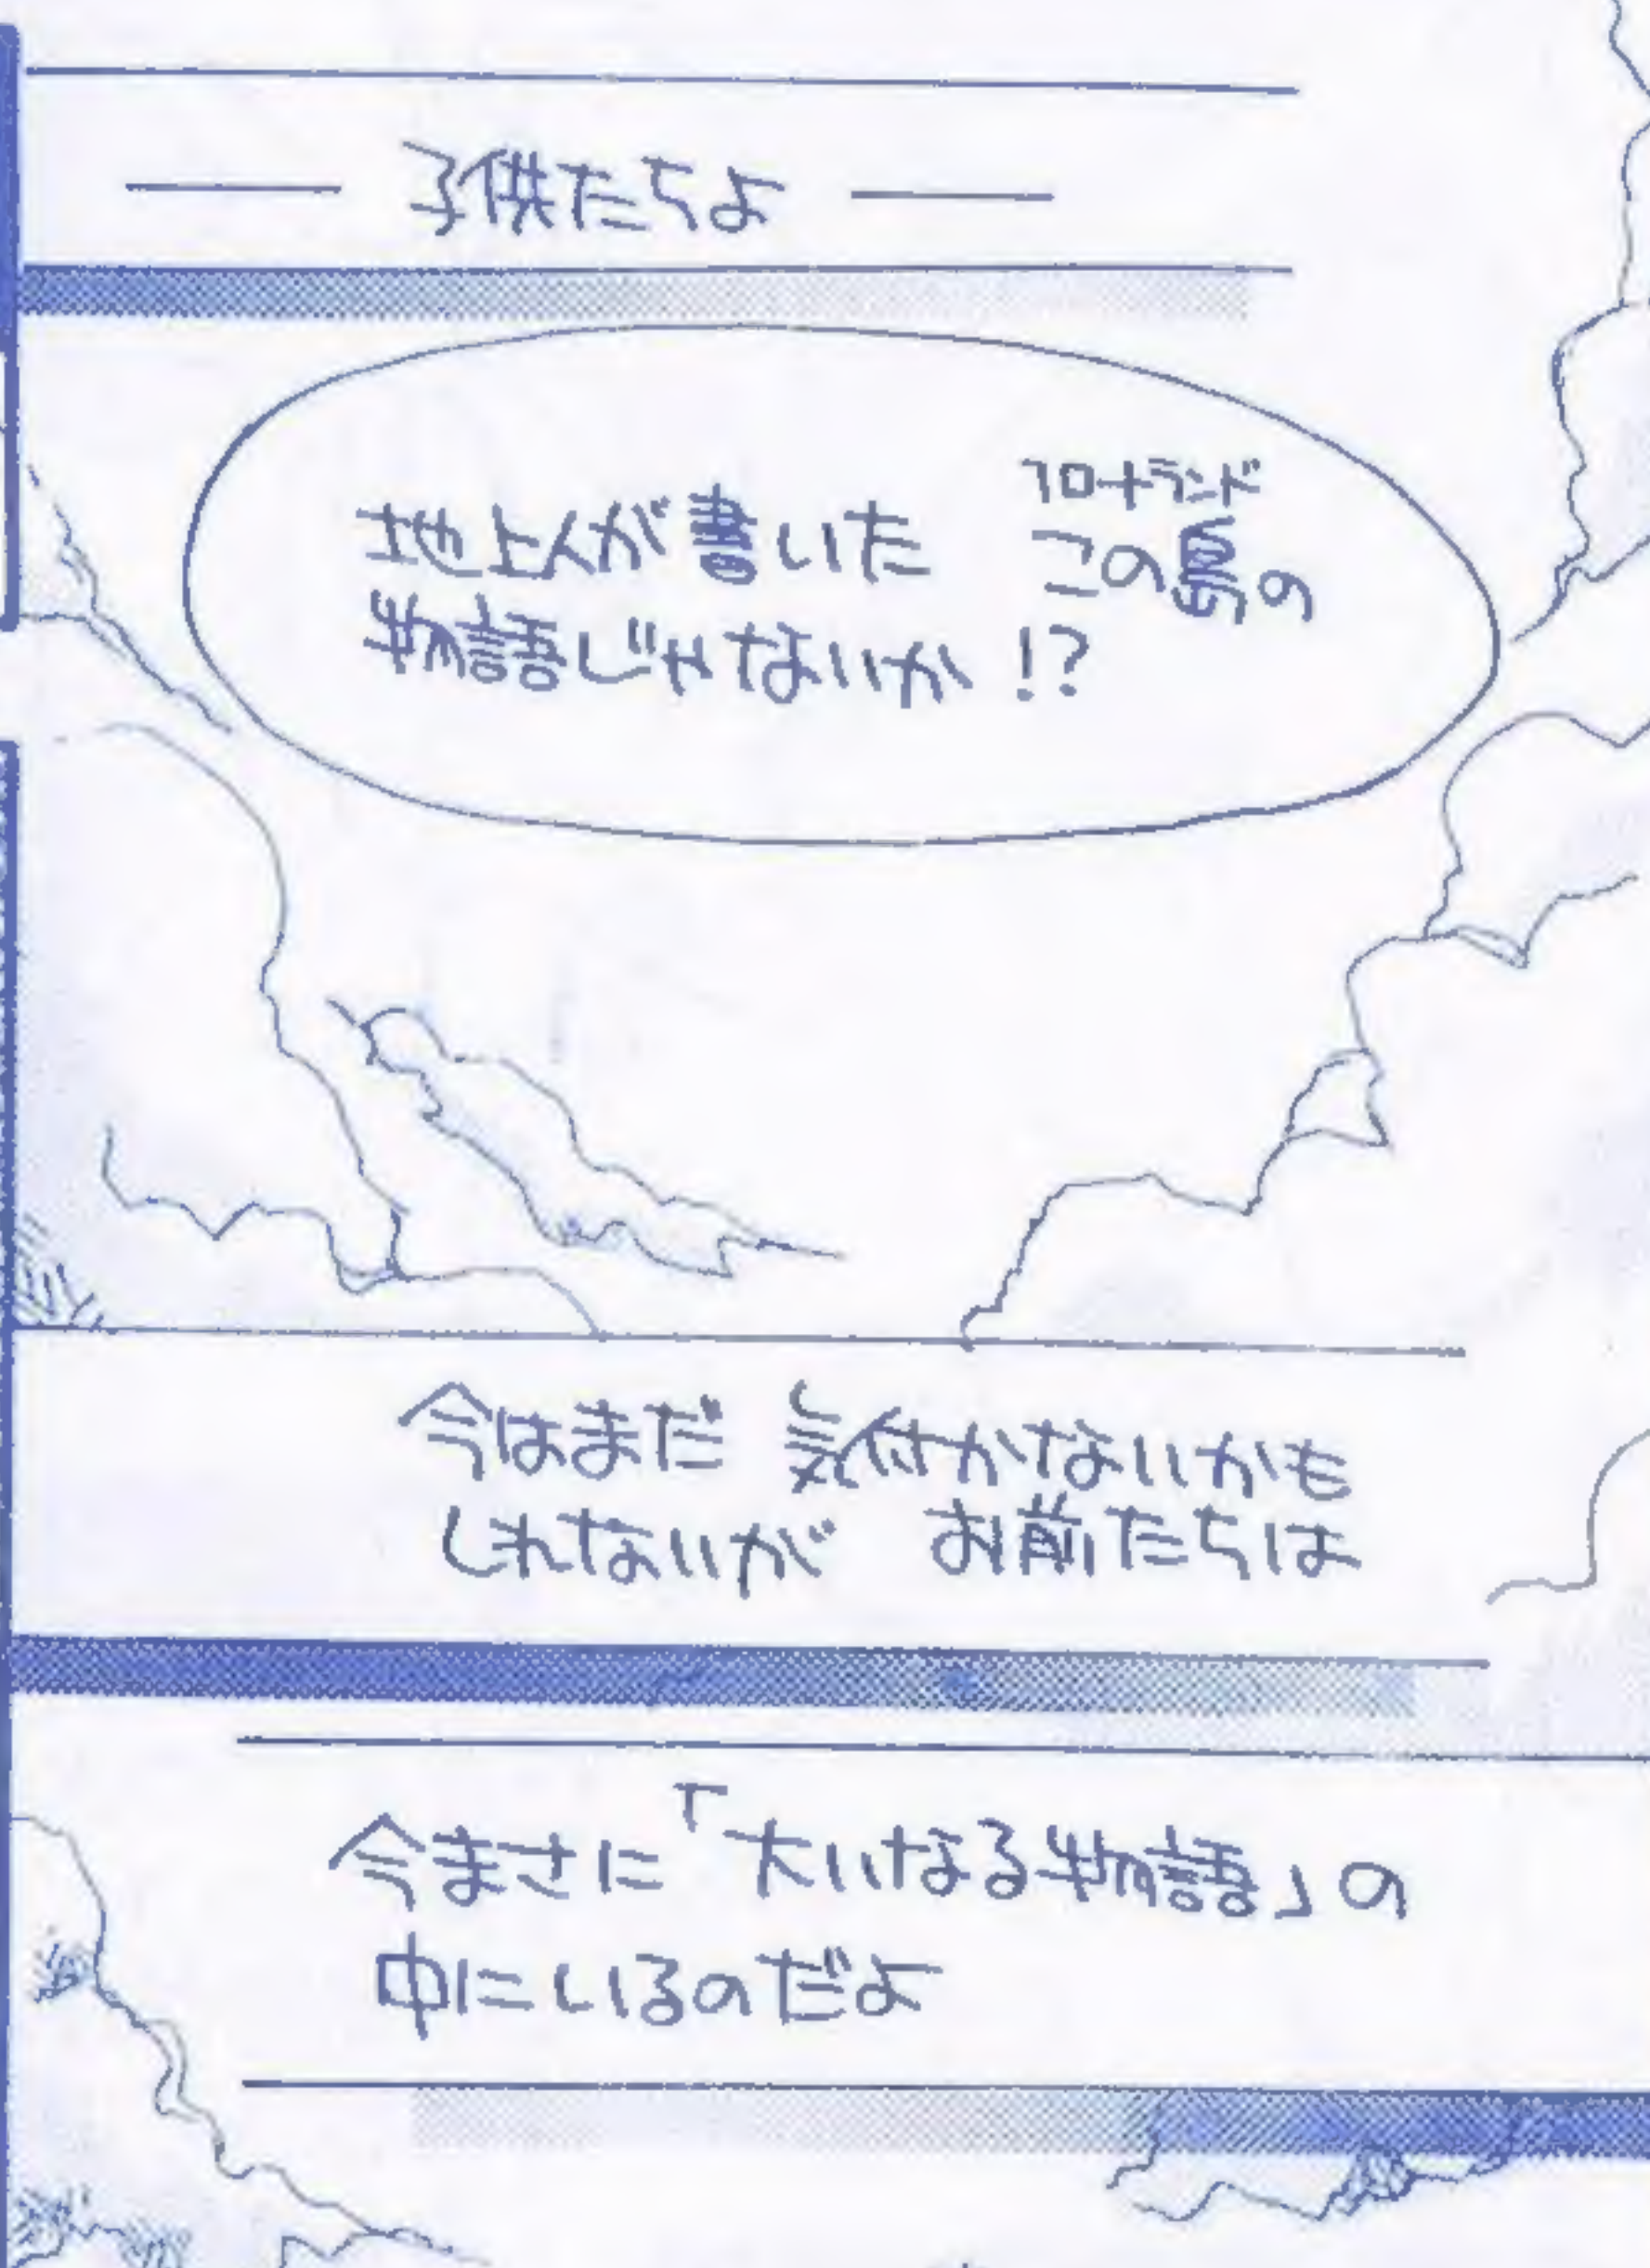 ― 子供たちよ ―
地上人が書いた この島の
フロートランド
物語じゃないか!?
今はまだ 気付かないかも
しれないが お前たちは
今まさに「大いなる物語」の
中にいるのだよ